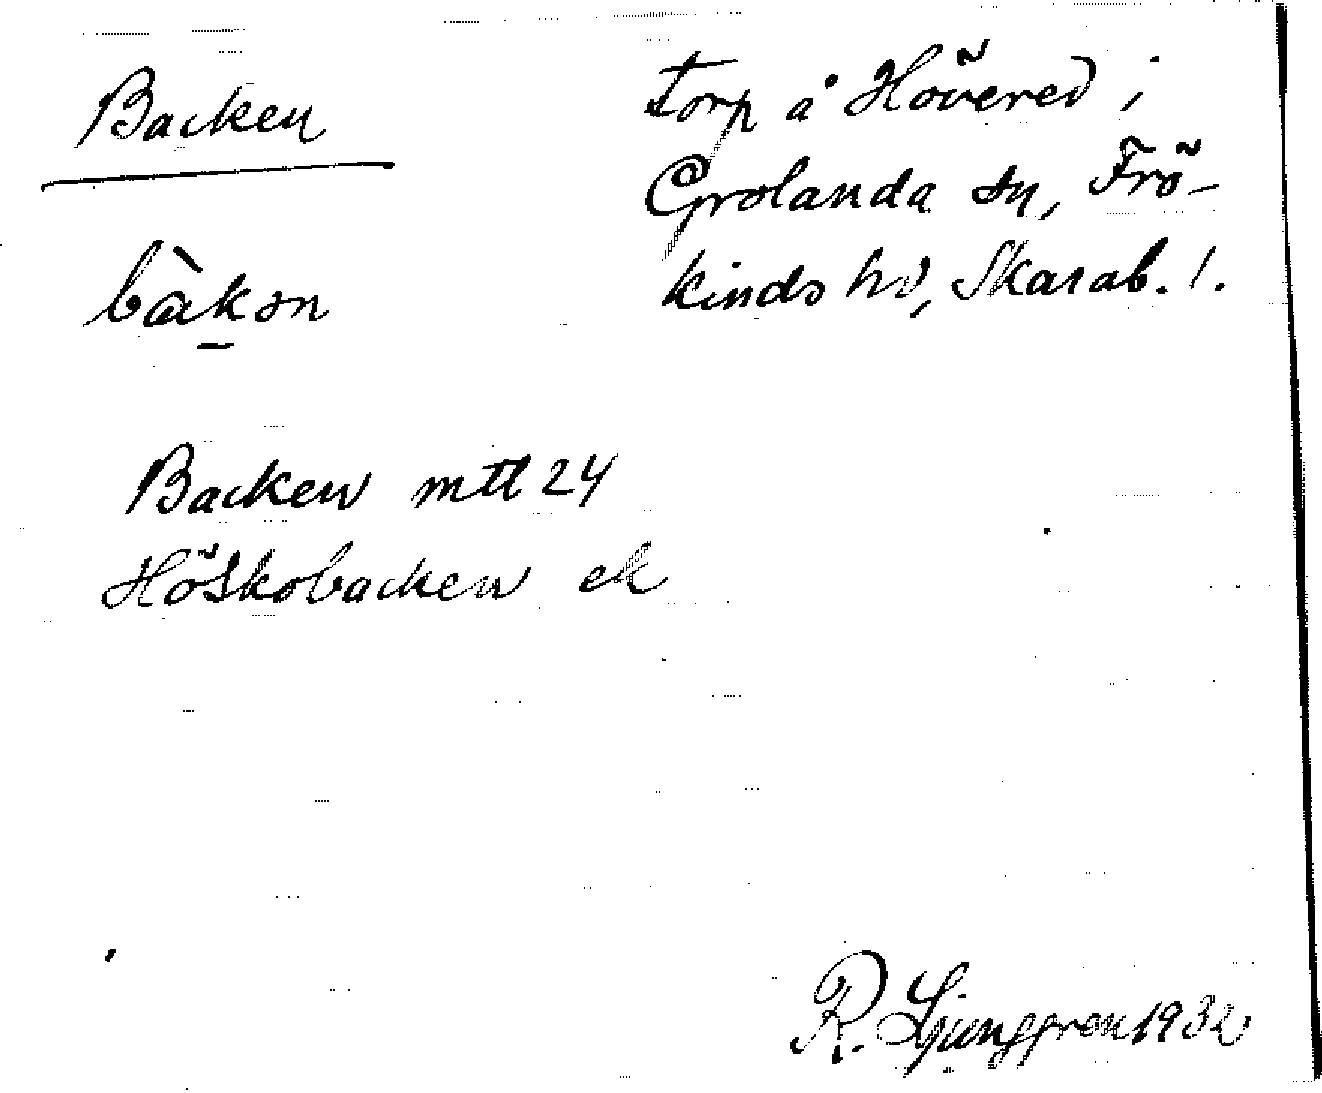 Backen
bàkən
torp å Hövered i
Grolanda sn, Frö-
kinds hd, Skarab. l.
Backen mtl 24
Höskobacken ek
R. Ljunggren 1932